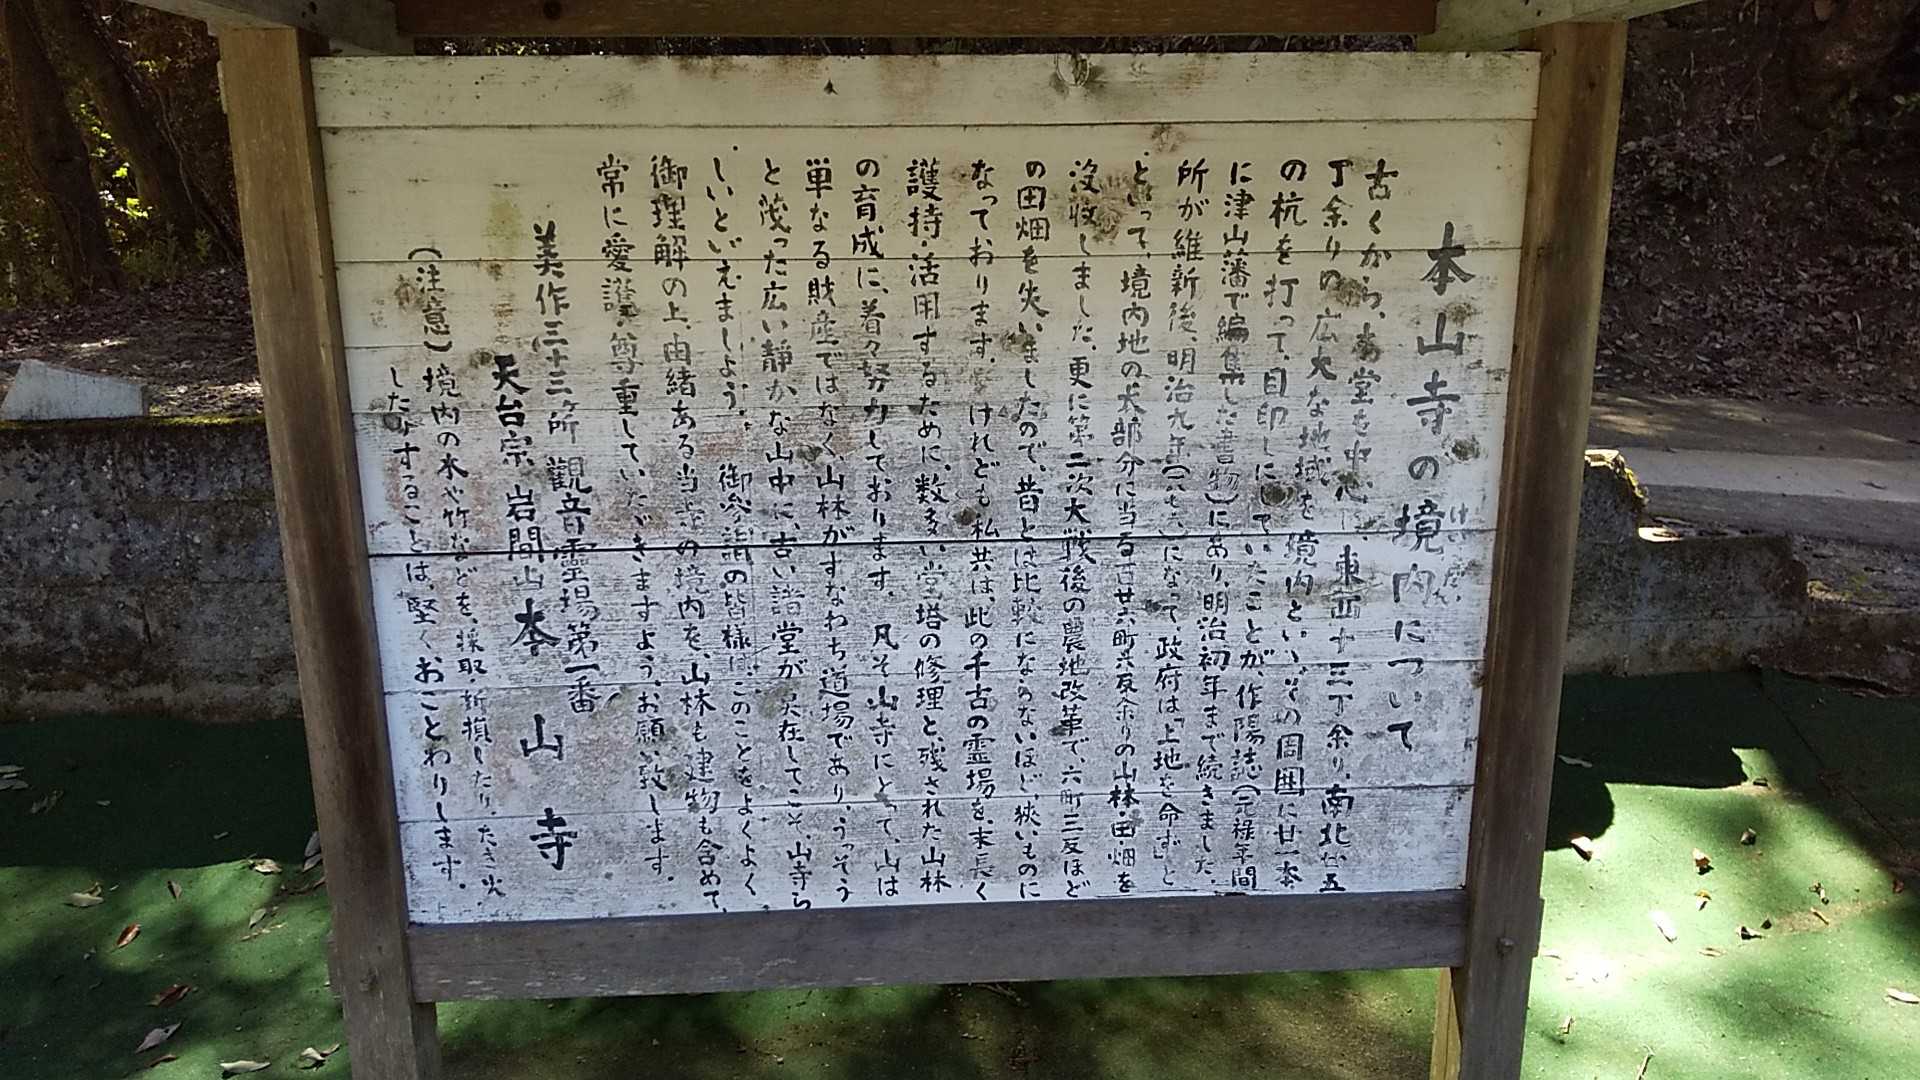 本山寺の境内について
けいだい
古くから、お堂を中心に、東西十三丁余り、南北廿五
丁余りの広大な地域を境内といい、その周囲に廿一本
の杭を打って、目印しにしていたことが、作陽誌(元禄年間
に津山藩で編集した書物)にあり、明治初年まで続きました。
所が維新後、明治九年(一八七六)になって、政府は「上地を命ず」と
といって、境内地の大部分に当る百廿六町六反余りの山林・田・畑を
没収しました。更に第二次大戦後の農地改革で、六町三反ほど
の田畑を失いましたので、昔とは比較にならないほど、狭いものに
なっております。けれども私共は、此の千古の霊場を、末長く
護持・活用するために、数多い堂塔の修理と、残された山林
の育成に、着々努力しております。凡そ山寺にとって、山は
単なる財産ではなく、山林がすなわち道場であり、うっそう
と茂った広い静かな山中に、古い諸堂が実在してこそ、山寺ら
しいといえましよう。御参詣の皆様は、このことをよくよく
御理解の上、由緒ある当寺の境内を、山林も建物も含めて、
常に愛護・尊重していただきますよう、お願い致します。
美作三十三ヶ所観音霊場第一番
天台宗岩間山本山寺
(注意)境内の木や竹などを、採取・折損したり、たき火
したりすることは、堅くおことわりします。